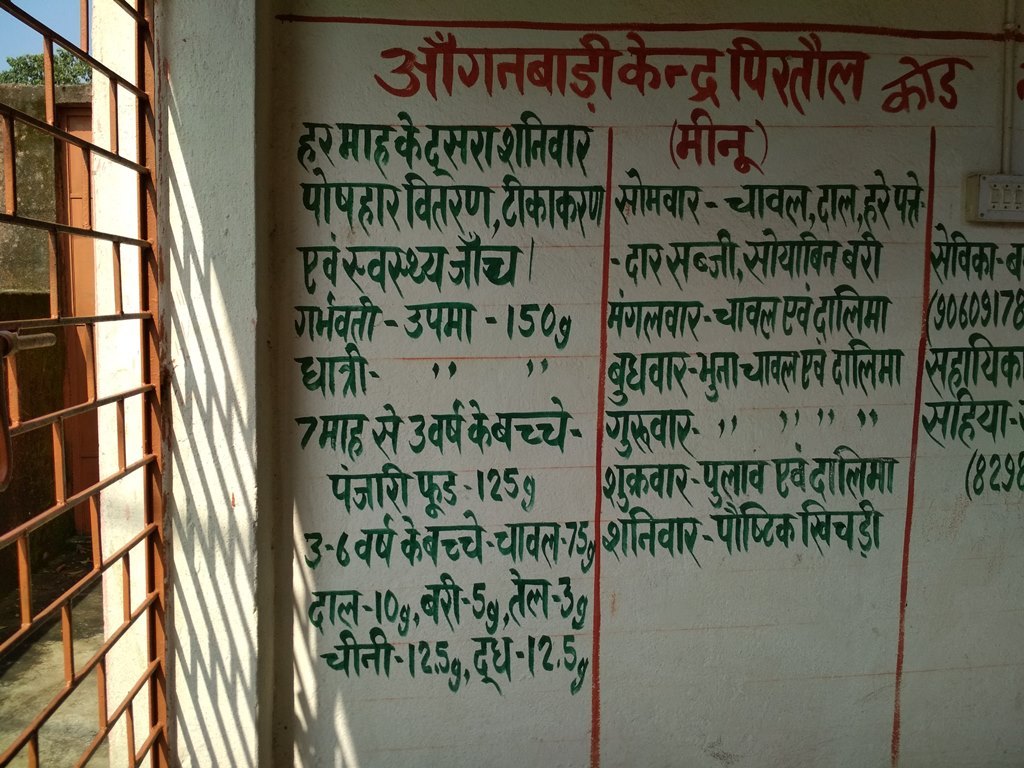 आँगनबाड़ी केन्द्र पिरतौल कोड
हर माह के दूसरा शनिवार
पोषहार वितरण, टीकाकरण
एवं स्वस्थ्य जाँच।
गर्भवती - उपमा - 150g
धात्री- ,, ,,
7 माह से 3 वर्ष के बच्चे-
पंजारी फूड - 125g
3-6 वर्ष के बच्चे - चावल - 75g
दाल-10g, बरी-5g, तेल-3g
चीनी-12.5g, दूध-12.5g
(मीनू)
सोमवार - चावल, दाल, हरे पत्ते-
-दार सब्जी, सोयाबिन बरी
मंगलवार-चावल एवं दालिमा
बुधवार-भुना चावल एवं दालिमा
गुरूवार- ,, ,, ,, ,,
शुक्रवार-पुलाव एवं दालिमा
शनिवार-पौष्टिक खिचड़ी
सेविका-
(9060917
सहायिका
सहिया-
(8298